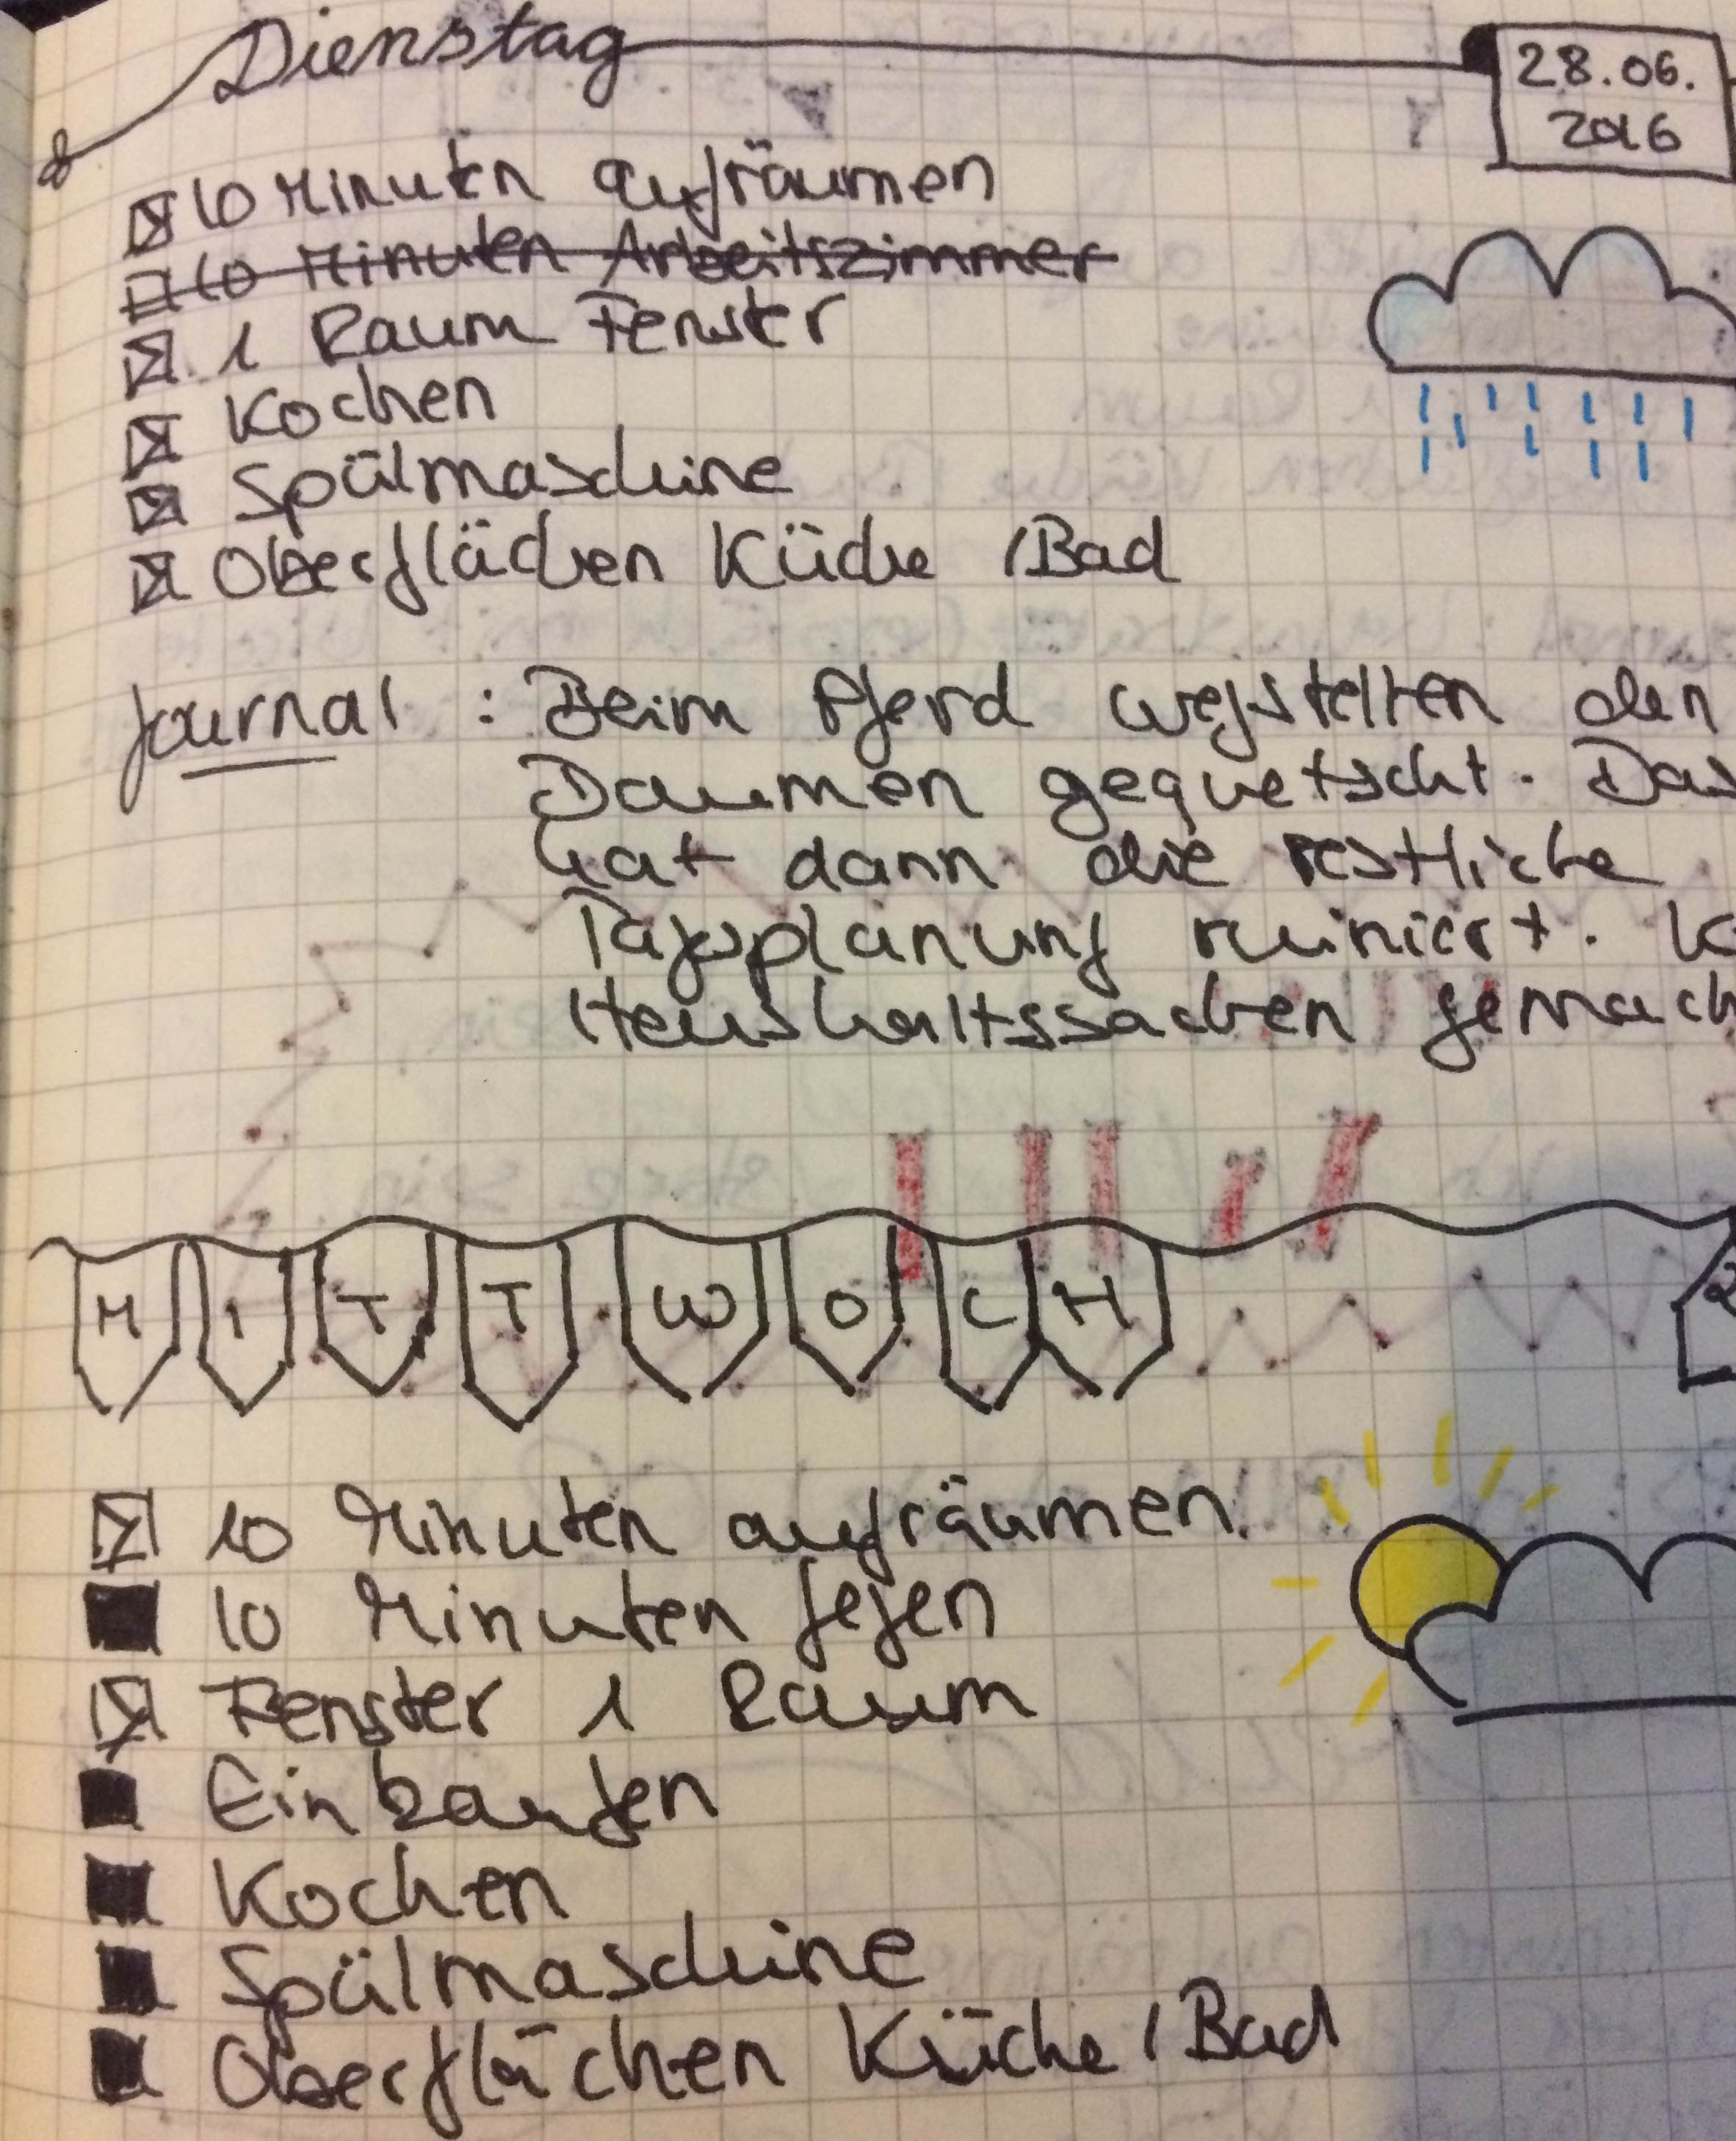 Dienstag
28.06.
2016
10 Minuten aufräumen
10 Minuten Arbeitszimmer
1 Raum Fenster
Kochen
Spülmaschine
Oberflächen Küche / Bad
Journal : Beim Pferd wegstellen den
Daumen gequetscht. Das
hat dann die restliche
Tagesplanung ruiniert. K
Haushaltssachen gemach
MITTWOCH
2
10 Minuten aufräumen.
10 Minuten fegen
Fenster 1 Raum
Einkaufen
Kochen
Spülmaschine
Oberflächen Küche / Bad